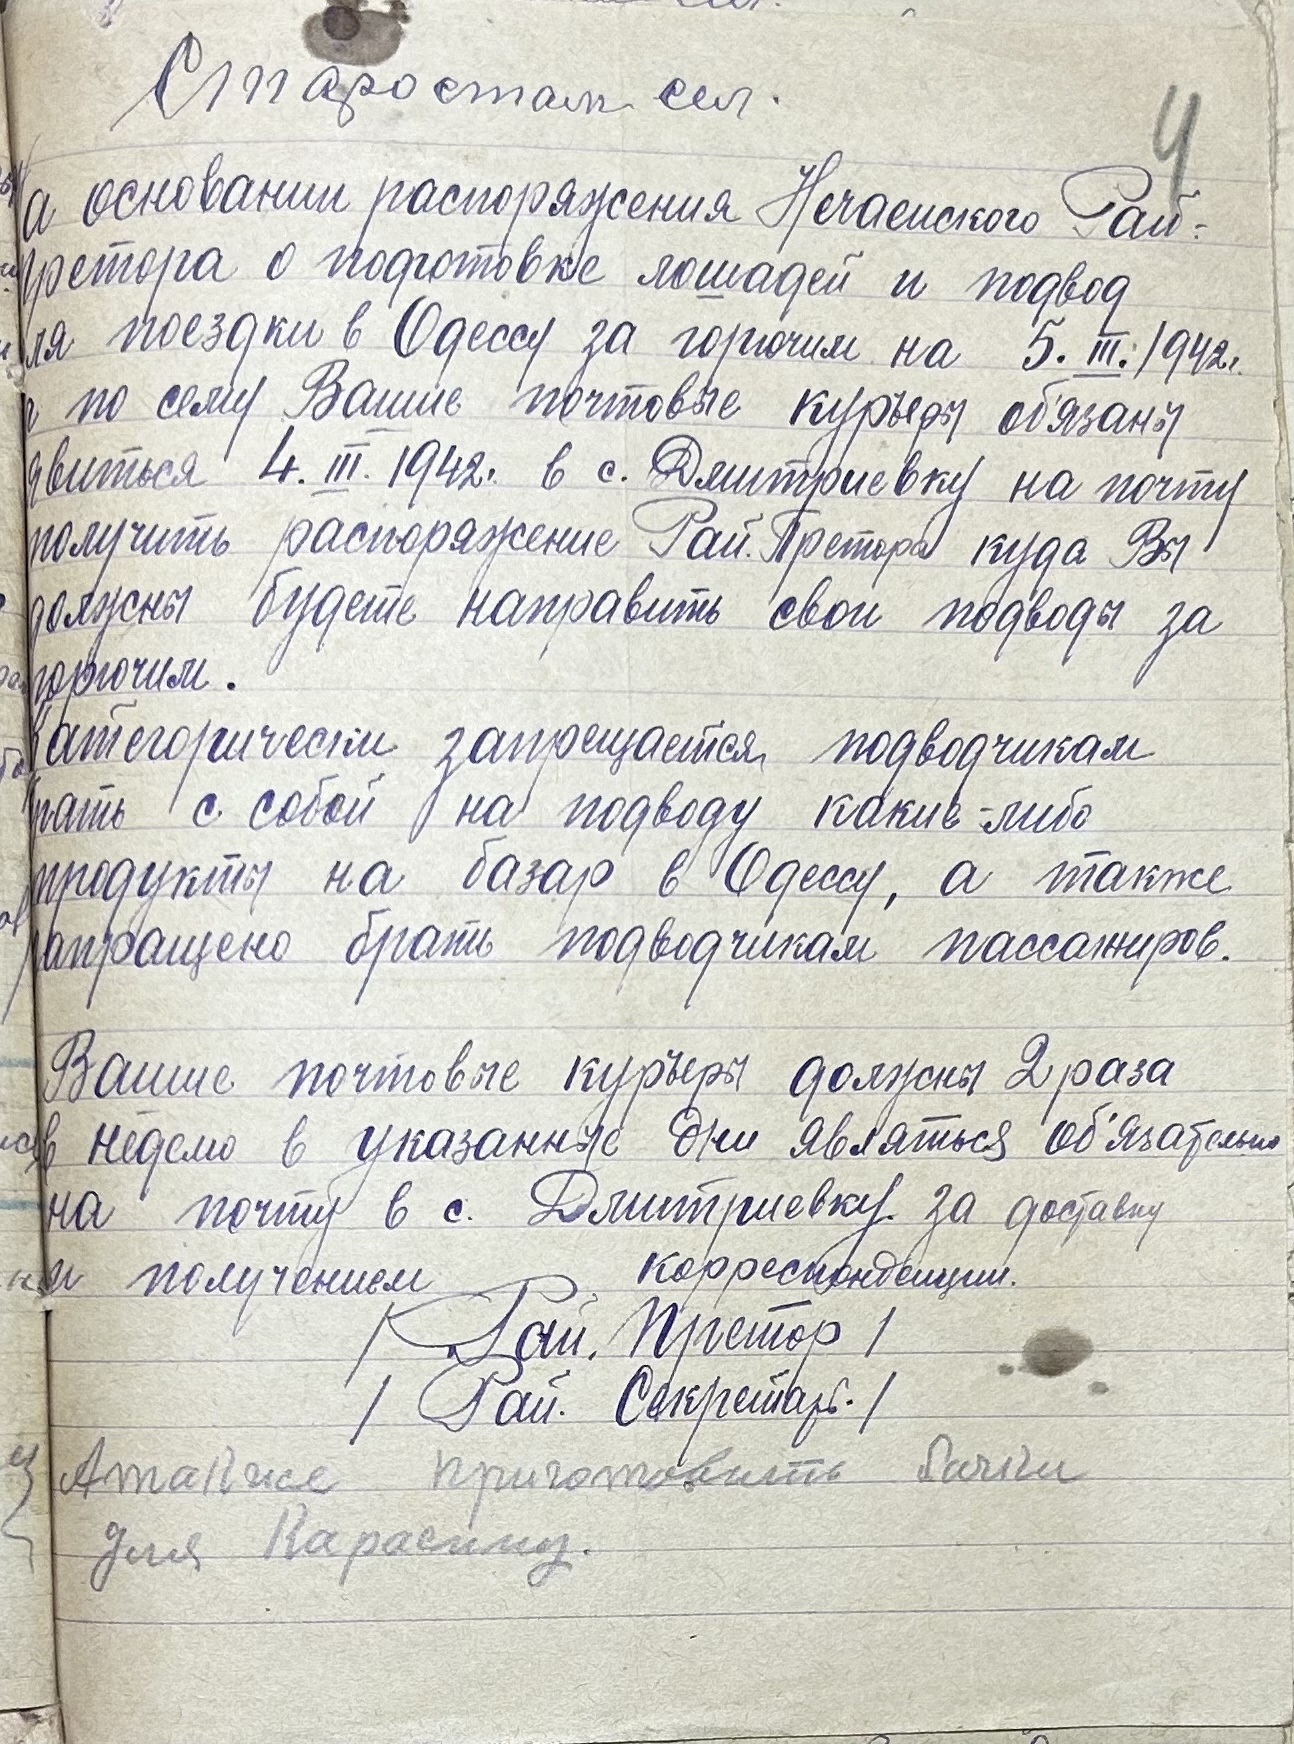 Старостам сел.
4
а основании распоряжения Нечаенского Рай-
претора о подготовке лошадей и подвод
ля поездки в Одессу за горючим на 5.III.1942г.
по сему Ваши почтовые курьеры об'язаны
явиться 4.III.1942г. в с. Дмитриевку на почту
получить распоряжение Рай.Претора куда Вы
должны будете направить свои подводы за
горючим.
Категорически запрещается подводчикам
рать с собой на подводу какие-либо
продукты на базар в Одессу, а также
запращено брать подводчикам пассажиров.
Ваши почтовые курьеры должны 2 раза
в неделю в указанные дни являться об'язательно
на почту в с. Дмитриевку за доставку
и получением корреспонденции.
/ Рай. Претор /
/ Рай. Секретарь. /
Атакже приготовить бочки
для